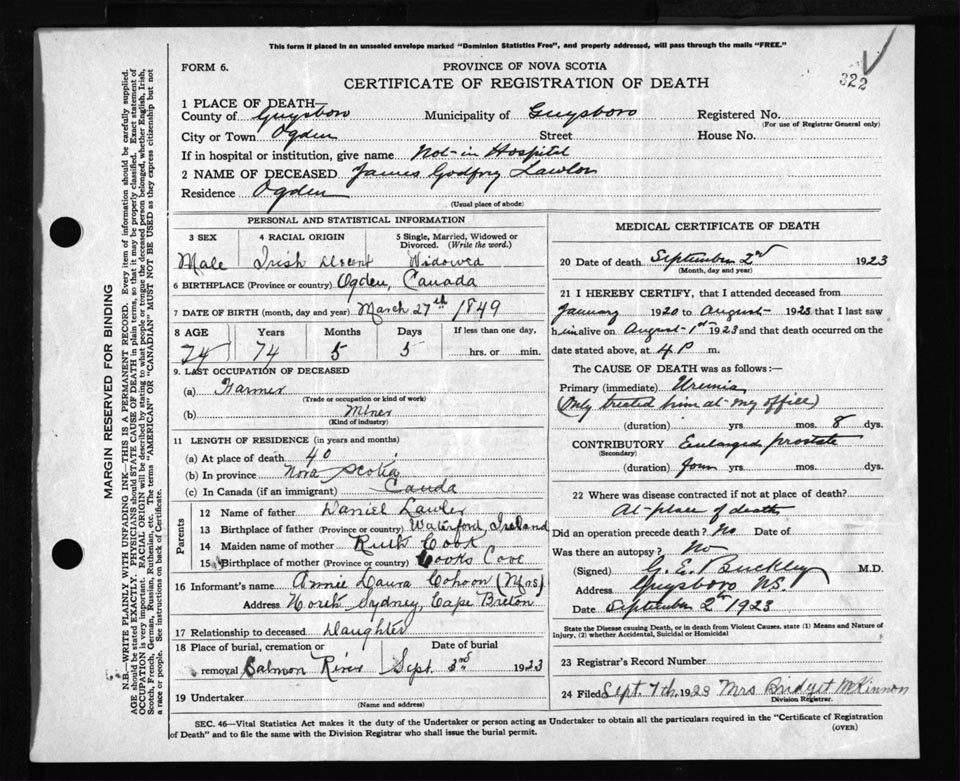 This form if placed in an unsealed envelope marked "Dominion Statistics Free", and properly addressed, will pass through the mails "FREE."
FORM 6.
PROVINCE OF NOVA SCOTIA
322
CERTIFICATE OF REGISTRATION OF DEATH
1 PLACE OF DEATH—
County of Guysboro Municipality of Guysboro Registered No.
(For use of Registrar General only)
City or Town Ogden Street House No.
If in hospital or institution, give name Not in Hospital
2 NAME OF DECEASED James Godfrey Lawlor
Residence Ogden
(Usual place of abode)
PERSONAL AND STATISTICAL INFORMATION
3 SEX 4 RACIAL ORIGIN 5 Single, Married, Widowed or Divorced. (Write the word.)
Male Irish Decent Widowed
6 BIRTHPLACE (Province or country) Ogden, Canada
7 DATE OF BIRTH (month, day and year) March 27th 1849
8 AGE Years Months Days If less than one day,
74 74 5 5 hrs. or min.
9. LAST OCCUPATION OF DECEASED
(a) Farmer
(Trade or occupation or kind of work)
(b) Miner
(Kind of industry)
11 LENGTH OF RESIDENCE (in years and months)
(a) At place of death 40
(b) In province Nova Scotia
(c) In Canada (if an immigrant) Canda
Parents
12 Name of father Daniel Lawler
13 Birthplace of father (Province or country) Waterford, Ireland
14 Maiden name of mother Ruth Cook
15 Birthplace of mother (Province or country) Cooks Cove
16 Informant's name Annie Laura Cohoon (Mrs)
Address North Sydney, Cape Breton
17 Relationship to deceased Daughter
18 Place of burial, cremation or Date of burial
removal Salmon River Sept. 3rd 1923
19 Undertaker
(Name and address)
MEDICAL CERTIFICATE OF DEATH
20 Date of death September 2nd 1923
(Month, day and year)
21 I HEREBY CERTIFY, that I attended deceased from
January 1920 to August 1923 that I last saw
him alive on August 1st 1923 and that death occurred on the
date stated above, at 4 P m.
The CAUSE OF DEATH was as follows :—
Primary (immediate) Uremia
(Only treated him at my office)
(duration) yrs. mos. 8 dys.
CONTRIBUTORY Enlarged prostate
(Secondary)
(duration) four yrs. mos. dys.
22 Where was disease contracted if not at place of death?
At place of death
Did an operation precede death? No Date of
Was there an autopsy? No
(Signed) G. E. Buckley M.D.
Address Guysboro N.S.
Date September 2nd 1923
State the Disease causing Death, or in death from Violent Causes, state (1) Means and Nature of
Injury, (2) whether Accidental, Suicidal or Homicidal
23 Registrar's Record Number
24 Filed Sept. 7th, 1923 Mrs Bridget McKinnon
Division Registrar.
SEC. 46—Vital Statistics Act makes it the duty of the Undertaker or person acting as Undertaker to obtain all the particulars required in the "Certificate of Registration
of Death" and to file the same with the Division Registrar who shall issue the burial permit.
(OVER)
MARGIN RESERVED FOR BINDING
N.B.—WRITE PLAINLY WITH UNFADING INK—THIS IS A PERMANENT RECORD. Every item of information should be carefully supplied.
AGE should be stated EXACTLY. PHYSICIANS should STATE CAUSE OF DEATH in plain terms, so that it may be properly classified. Exact statement of
OCCUPATION is very important. RACIAL ORIGIN will be described by stating to what people or tongue the deceased person belonged, whether English, Irish,
Scotch, French, German, Russian, Ruthenian, etc. The terms "AMERICAN" OR "CANADIAN" MUST NOT BE USED as they express citizenship but not
a race or people. See instructions on back of Certificate.